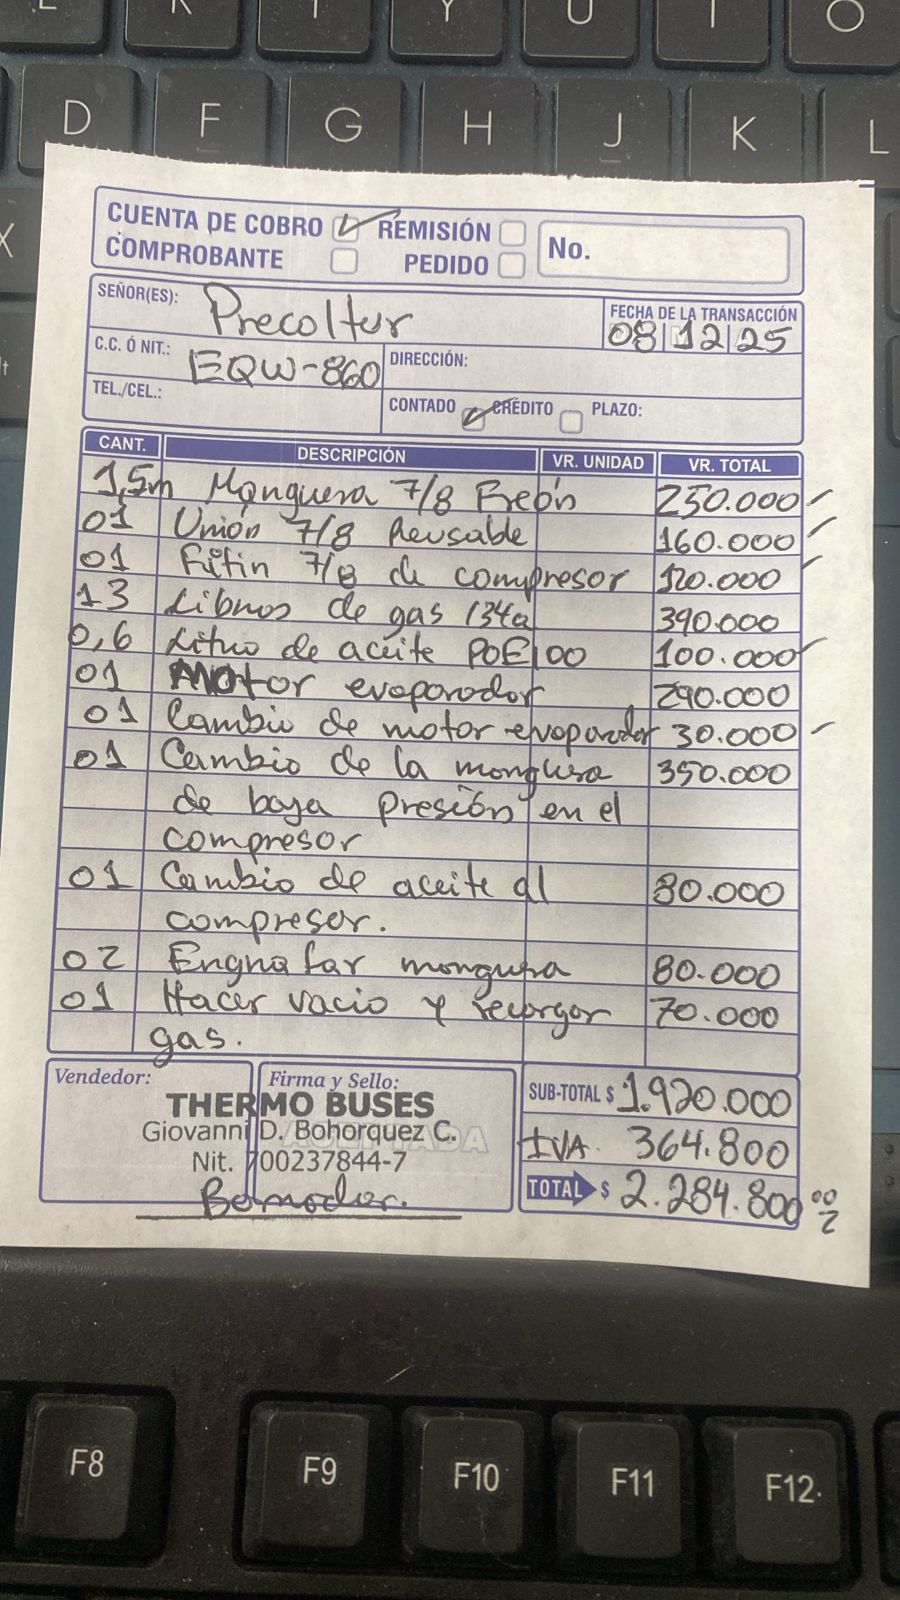 CUENTA DE COBRO REMISIÓN
COMPROBANTE PEDIDO
No.
SEÑOR(ES): Precoltur
FECHA DE LA TRANSACCIÓN
08 12 25
C.C. Ó NIT.: EQW-860
DIRECCIÓN:
TEL./CEL.:
CONTADO CRÉDITO PLAZO:
CANT. DESCRIPCIÓN VR. UNIDAD VR. TOTAL
1,5m Manguera 7/8 Freón 250.000
01 Unión 7/8 Reusable 160.000
01 Fitin 7/8 de compresor 120.000
13 Libras de gas 134a 390.000
0,6 Litro de aceite POE100 100.000
01 Motor evaporador 290.000
01 Cambio de motor evaporador 30.000
01 Cambio de la manguera 350.000
de baja presión en el
compresor
01 Cambio de aceite al 80.000
compresor.
02 Engrafar manguera 80.000
01 Hacer vacio y recargar 70.000
gas.
Vendedor:
Firma y Sello:
THERMO BUSES
Giovanni D. Bohorquez C.
Nit. 700237844-7
SUB-TOTAL $ 1.920.000
IVA. 364.800
TOTAL $ 2.284.800